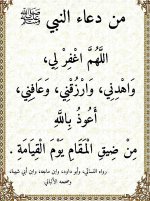 من دعاء النبي ﷺ
اللَّهُمَّ اغْفِرْ لِي،
وَاهْدِنِي، وَارْزُقْنِي، وَعَافِنِي،
أَعُوذُ بِاللَّهِ
مِنْ ضِيقِ الْمَقَامِ يَوْمَ الْقِيَامَةِ .
رواه النسائي، وأبو داود، وابن ماجه، وابن أبي شيبة،
وصححه الألباني